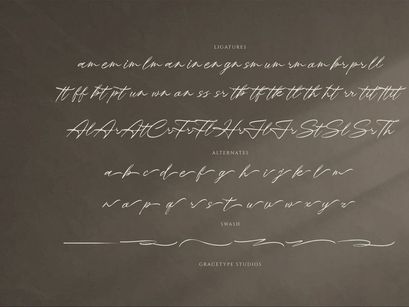 LIGATURES
am em im lm an in en gn sm um rm om br pr ll
tt ff bt pt un wn on ss sr
Al Ar At Cr Fr Fl Hr Jl Jr St Sl Sr Th
ALTERNATES
a b c d e f g h i j k l m
n o p q r s t u v w x y z
SWASH
GRACETYPE STUDIOS